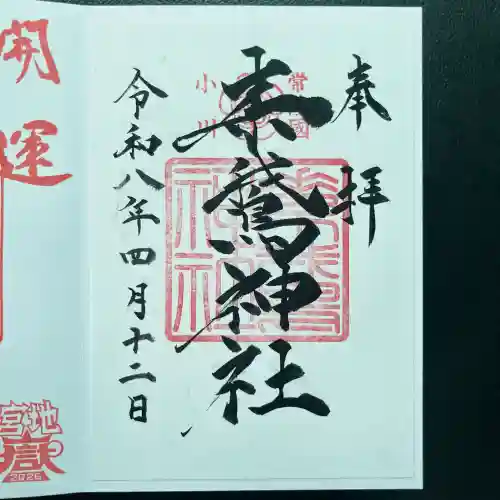 奉拝
常陸國
小川
素鵞神社
令和八年四月十二日
開運
宮地
嶽
2026